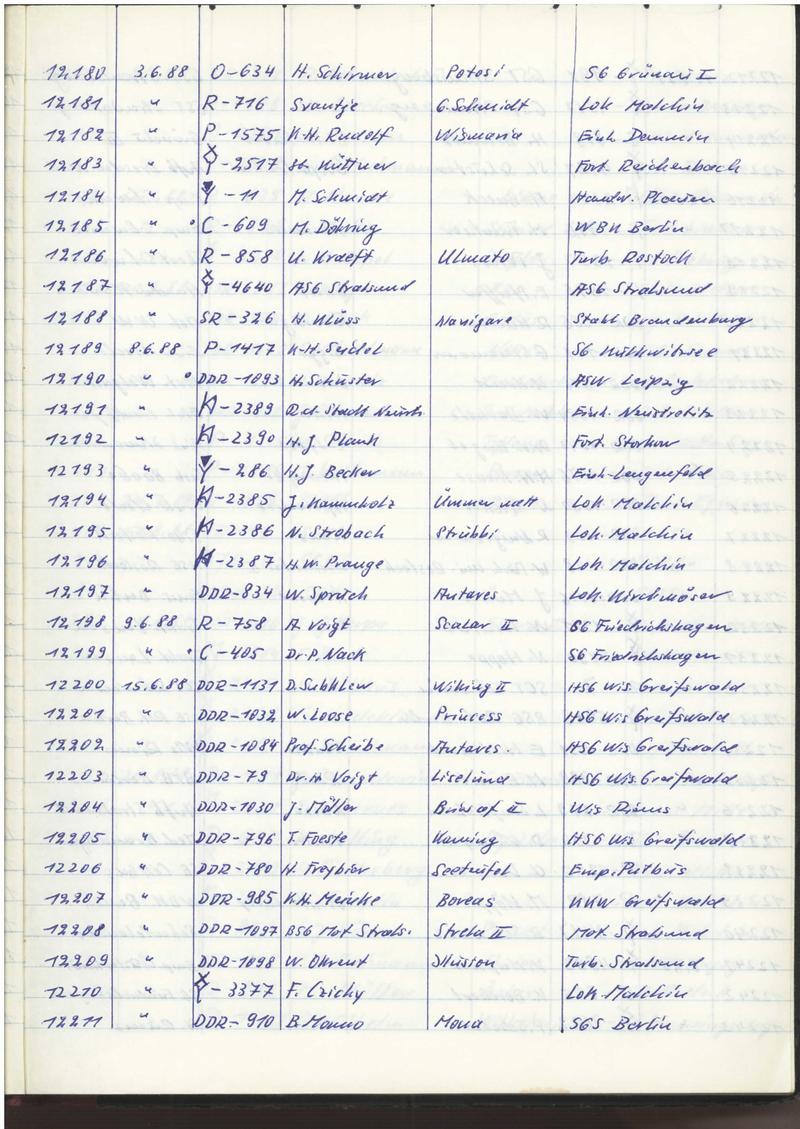 12180 3.6.88 O-634 H. Schirmer Potosi SG Grünau I
12181 " R-716 Svantje G. Schmidt Lok. Malchin
12182 " P-1575 K.H. Rudolf Wismaria Einh. Demmin
12183 " Y-2517 Küttner Fort. Reichenbach
12184 " Y-11 M. Schmidt Handw. Plauen
12185 " C-609 M. Döhring WBK Berlin
12186 " R-858 U. Kraeft Ulmato Turb. Rostock
12187 " Y-4640 ASG Stralsund ASG Stralsund
12188 " SR-326 H. Klüss Navigare Stahl Brandenburg
12189 8.6.88 P-1417 K-H. Seidel SG Kulkwitzsee
12190 " DDR-1093 H. Schuster ASW Leipzig
12191 " H-2389 R.d. Stadt Neustr. Einh. Neustrelitz
12192 " H-2390 H.J. Plauk Fort. Storkow
12193 " Y-286 H.J. Becker Einh-Lengenfeld
12194 " H-2385 J. Kammholz Ümmer natt Lok. Malchin
12195 " H-2386 N. Strobach Strübbi Lok. Malchin
12196 " H-2387 H.W. Prange Lok. Malchin
12197 " DDR-834 W. Sproch Antares Lok. Kirchmöser
12198 9.6.88 R-758 A. Voigt Scalar II SG Friedrichshagen
12199 " C-405 Dr. P. Nack SG Friedrichshagen
12200 15.6.88 DDR-1131 D. Subklew Wiking II HSG Wis Greifswald
12201 " DDR-1032 W. Loose Princess HSG Wis Greifswald
12202 " DDR-1084 Prof. Scheibe Antares. HSG Wis Greifswald
12203 " DDR-79 Dr. H. Voigt Liselund HSG Wis. Greifswald
12204 " DDR-1030 J. Möller II Wis Riems
12205 " DDR-796 T. Foeste Kaming HSG Wis Greifswald
12206 " DDR-780 H. Freybier Seeteufel Emp. Putbus
12207 " DDR-985 K.H. Meinke Boreas KKW Greifswald
12208 " DDR-1097 BSG Mot. Strals. Strela II Mot. Stralsund
12209 " DDR-1098 W. Okrent Illusion Turb. Stralsund
12210 " Y-3377 F. Czichy Lok. Malchin
12211 " DDR-910 B. Monno Mona SGS Berlin